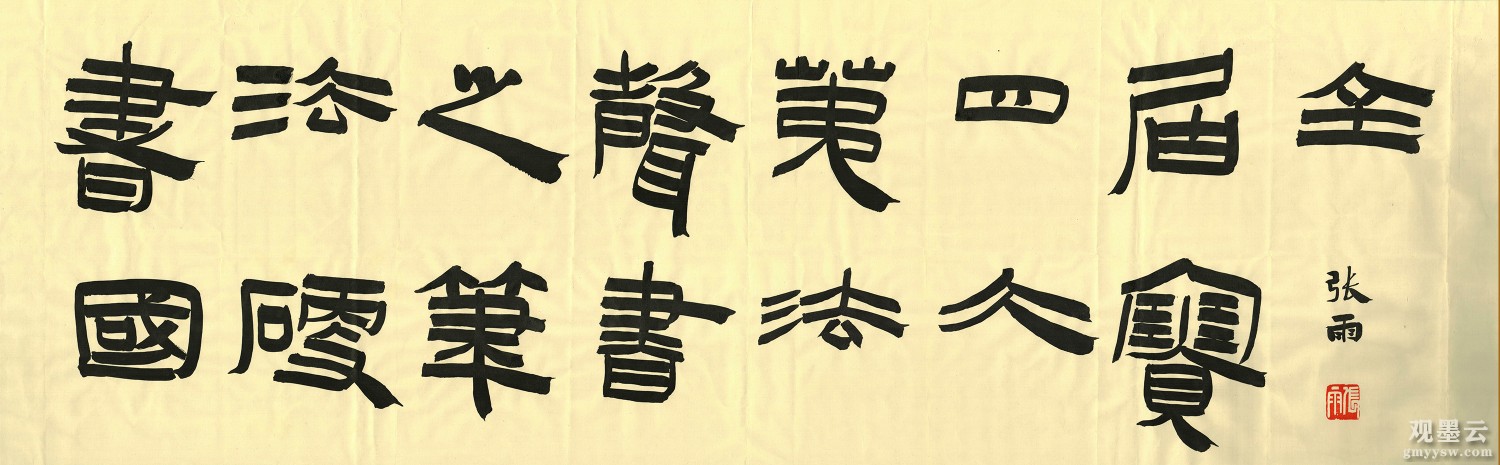 書法之聲第四届全
國硬筆書法大賽
张雨
張雨
观墨云
gmyysw.com